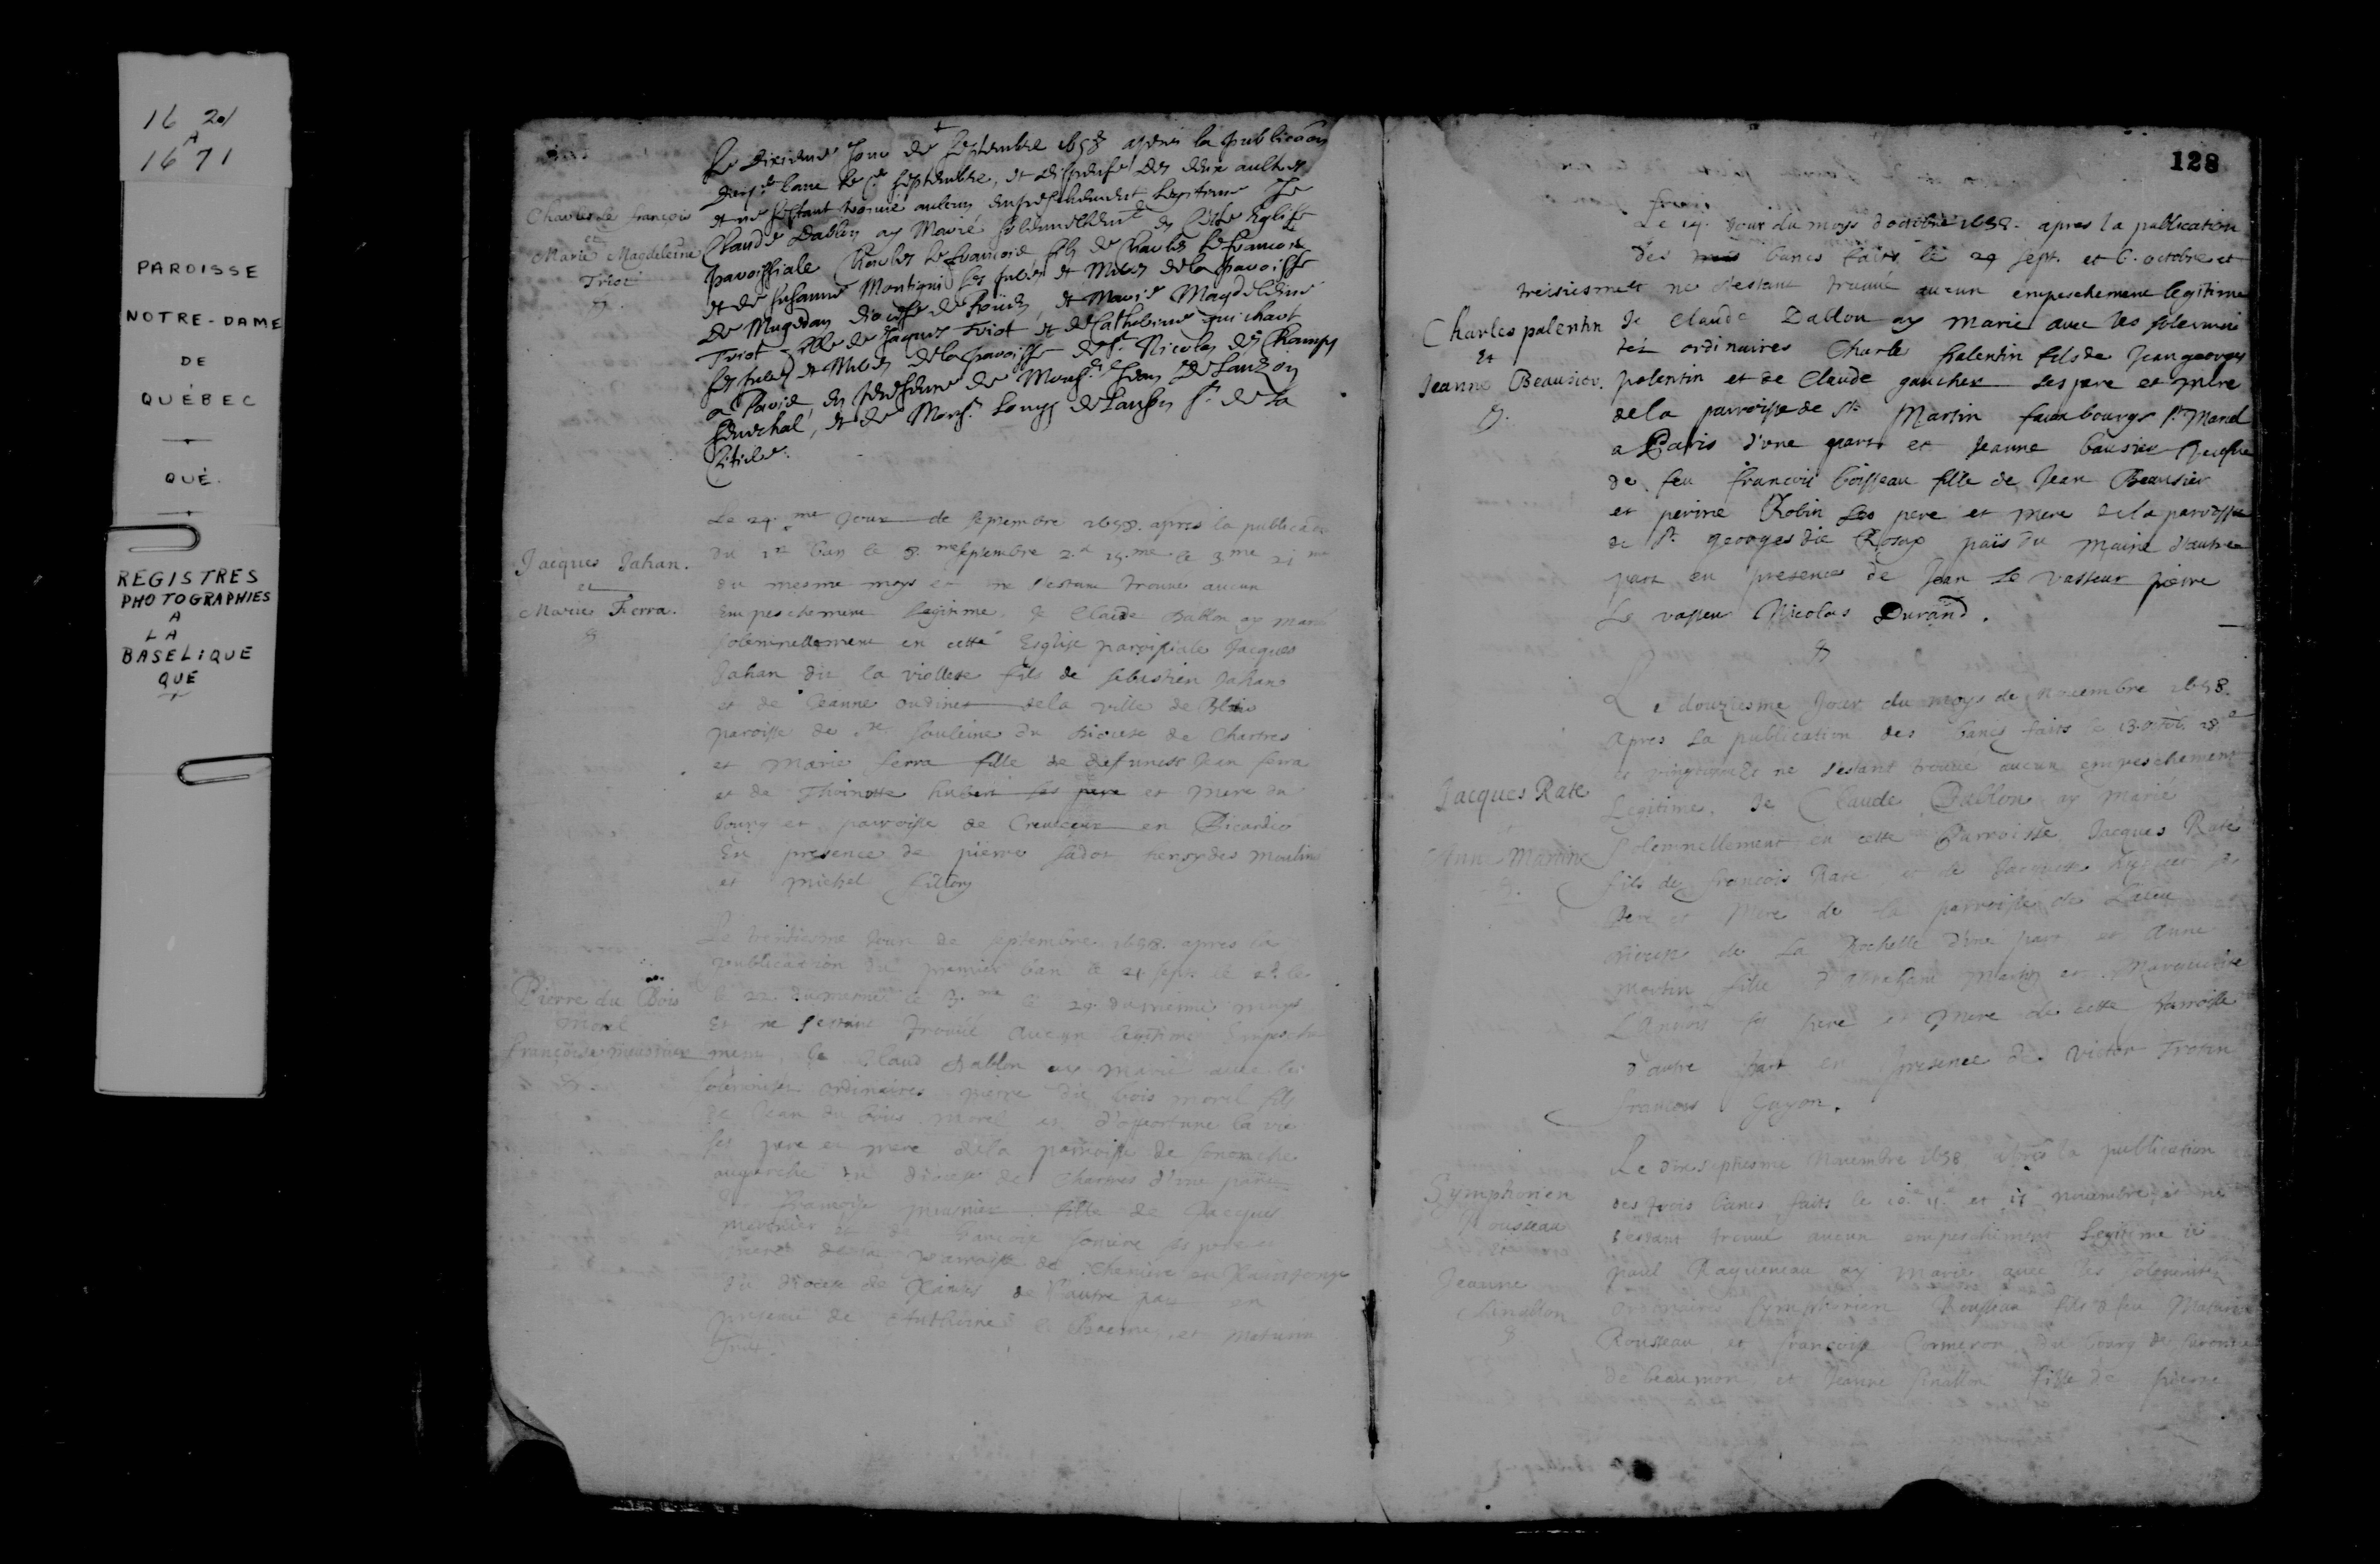 16 21
A
16 71
PAROISSE
NOTRE-DAME
DE
QUÉBEC
QUÉ.
REGISTRES
PHOTOGRAPHIES
A
LA
BASELIQUE
QUE
Charles Le françois
et
Marie Magdeleine
Triot
Le dixieme Jour de Septembre 1658 apres la publicaon
septembre, et dispense des deux aultres
et ne sestant trouué aulcun empeschement legitime Je
Claude Dablon ay Marié solemnellemt en Cette Eglise
paroissiale Charles le francois fils de Charles le francois
et de susanne Montigni ses peres et Meres de la paroisse
de Mugedan diocese de Roüen, et Marie Magdeleine
Triot fille de Jaques Triot et de Catherine guichart
ses peres et Meres de la paroisse de St. Nicolas des Champs
a Paris, en presence de Monsr. Jean De Lauzon
senechal, et de Monsr. Louys de Lauson sr. de La
Citiere.
Jacques Jahan.
et
Marie Ferra.
Le 24.me Jour de septembre 1658. apres la publicaon
du 1er ban le 8.me septembre 2.d 15.me le 3.me 21 me
du mesme moys et ne s'estant trouue aucun
Empeschement legitime. Je Claude Dablon ay marié
solemnellement en cette Esglise paroissiale Jacques
Jahan dit la viollete fils de sebastien Jahan
et de Jeanne oudinet de la ville de Blois
paroisse de ste souleine du diocese de Chartres
et Marie ferra fille de defunct Jean ferra
et de Thoinette hubert ses pere et mere du
bourg et parroisse de Creuecœur en Picardie
En presence de pierre sadot henry des moulins
et michel fillion
Pierre du Bois
Morel
Françoise meusnier
Le trentiesme Jour de septembre 1658. apres la
publication du premier ban le 21 sept. le 2d. le
le 22. du mesme le 3.me le 29. du mesme moys
Et ne s'estant trouué aucun legitime Empesche
ment, Je Claud Dablon ay marié auec les
solemnitez ordinaires pierre du bois morel fils
de Jean du bois Morel et d'oportune la vie
ses pere et mere de la parroisse de
du diocese de Chartres d'une part
Et Francoise meusnier fille de Jacques
meusnier et de Francoise ses pere et
mere de la parroisse de
du diocese de Xaintes de l'autre part en
presence de Anthoine le Boesme, et Maturin
128
Charles palentin
et
Jeanne Beausier.
Le 14. Jour du moys d'octobre 1658. apres la publication
des bancs faits le 29 sept. et 6. octobre et
treiziesme et ne s'estant trouué aucun empeschement legitime
Je Claude Dablon ay marié auec les solemni
tez ordinaires Charle palentin fils de Jean georges
palentin et de Claude gaucher ses pere et mere
de la parroisse de St. Martin fauxbourgs St. Marcel
a Paris d'une part et Jeanne bausier veufue
de feu francois boisseau fille de Jean Beausier
et perine Robin ses pere et mere de la parroisse
de St. georges païs du Maine d'autre
part en presence de Jean Le Vasseur pierre
Le vasseur Nicolas Durand.
Jacques Raté
Anne Martin
Le douziesme Jour du moys de Nouembre 1658.
apres la publication des bancs faits le 13. Octob. 28.
et ne s'estant trouué aucun empeschement
Legitime. Je Claude Dablon ay marié
solemnellement en cette Parroisse Jacques Raté
fils de francois Raté et de Jacquette ses
Pere et Mere de la parroisse de Laleu
diocese de La Rochelle d'une part et Anne
Martin fille d'Abraham Martin et Marguerite
Langlois ses pere et mere de cette parroisse
d'autre part en presence de Victor
francois Guyon.
Symphorien
Rousseau
Jeanne
Sinallon
Le dixseptiesme Nouembre 1658 apres la publication
des trois bancs faits le 10. 11. et 17 nouembre et ne
s'estant trouué aucun empeschement Legitime ie
paul Ragueneau ay marié auec les solemnitez
ordinaires symphorien Rousseau fils de feu Maturin
Rousseau et françoise Cormeron du bourg de
de beaumon et Jeanne sinallon fille de pierre